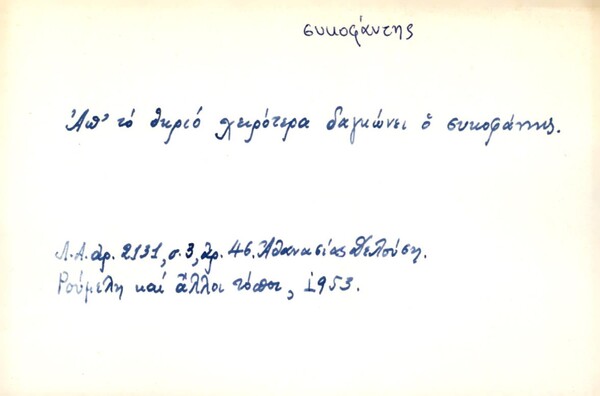 συκοφάντης
Ἀπ' τό θηριό χειρότερα δαγκώνει ὁ συκοφάντης.
Λ.Α. ἀρ. 2131, σ. 3, ἀρ. 46. Ἀθανασίας Ντελούση.
Ρούμελη καί ἄλλοι τόποι, 1953.